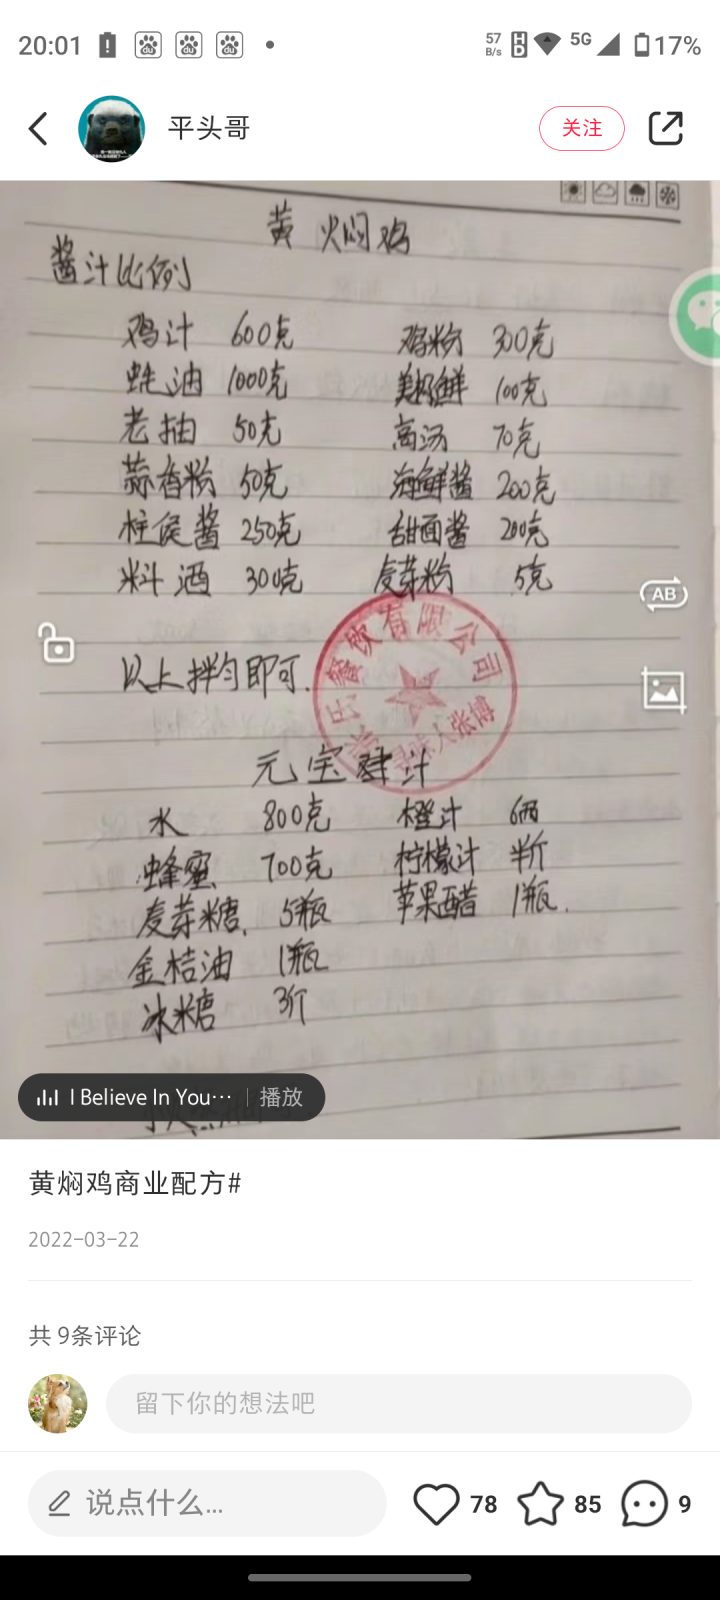 20:01
57 B/s HD 5G 17%
平头哥
关注
黄焖鸡
酱汁比例
鸡汁 600克 鸡粉 300克
蚝油 1000克 美极鲜 100克
老抽 50克 高汤 70克
蒜香粉 50克 海鲜酱 200克
柱侯酱 250克 甜面酱 200克
料酒 300克 麦芽粉 5克
AB
以上拌匀即可.
餐饮有限公司
寻味人张博
元宝 汁
水 800克 橙汁 6两
蜂蜜 700克 柠檬汁 半斤
麦芽糖. 5瓶 苹果醋 1瓶.
金桔油 1瓶
冰糖 3斤
I Believe In You… 播放
黄焖鸡商业配方#
2022-03-22
共 9条评论
留下你的想法吧
说点什么...
78 85 9